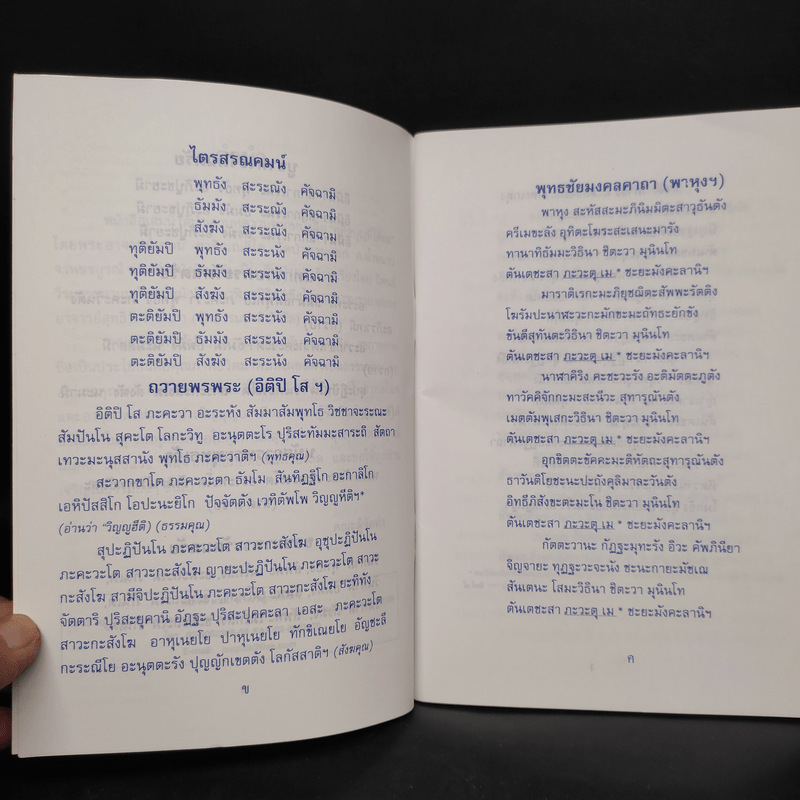 ไตรสรณคมน์
พุทธัง สะระณัง คัจฉามิ
ธัมมัง สะระณัง คัจฉามิ
สังฆัง สะระณัง คัจฉามิ
ทุติยัมปิ พุทธัง สะระนัง คัจฉามิ
ทุติยัมปิ ธัมมัง สะระนัง คัจฉามิ
ทุติยัมปิ สังฆัง สะระนัง คัจฉามิ
ตะติยัมปิ พุทธัง สะระนัง คัจฉามิ
ตะติยัมปิ ธัมมัง สะระนัง คัจฉามิ
ตะติยัมปิ สังฆัง สะระนัง คัจฉามิ
ถวายพรพระ (อิติปิ โส ฯ)
อิติปิ โส ภะคะวา อะระหัง สัมมาสัมพุทโธ วิชชาจะระณะ
สัมปันโน สุคะโต โลกะวิทู อะนุตตะโร ปุริสะทัมมะสาระถิ สัตถา
เทวะมะนุสสานัง พุทโธ ภะคะวาติฯ (พุทธคุณ)
สะวากขาโต ภะคะวะตา ธัมโม สันทิฏฐิโก อะกาลิโก
เอหิปัสสิโก โอปะนะยิโก ปัจจัตตัง เวทิตัพโพ วิญญูหีติฯ*
(อ่านว่า "วิญญูฮีติ) (ธรรมคุณ)
สุปะฏิปันโน ภะคะวะโต สาวะกะสังโฆ อุชุปะฏิปันโน
ภะคะวะโต สาวะกะสังโฆ ญายะปะฏิปันโน ภะคะวะโต สาวะ
กะสังโฆ สามีจิปะฏิปันโน ภะคะวะโต สาวะกะสังโฆ ยะทิทัง
จัตตาริ ปุริสะยุคานิ อัฏฐะ ปุริสะปุคคะลา เอสะ ภะคะวะโต
สาวะกะสังโฆ อาหุเนยโย ปาหุเนยโย ทักขิเณยโย อัญชะลี
กะระณีโย อะนุตตะรัง ปุญญักเขตตัง โลกัสสาติฯ (สังฆคุณ)
ข
พุทธชัยมงคลคาถา (พาหุงฯ)
พาหุง สะหัสสะมะภินิมมิตะสาวุธันตัง
ครีเมขะลัง อุทิตะโฆระสะเสนะมารัง
ทานาทิธัมมะวิธินา ชิตะวา มุนินโท
ตันเตชะสา ภะวะตุ เม * ชะยะมังคะลานิฯ
มาราติเรกะมะภิยุชฌิตะสัพพะรัตติง
โฆรัมปะนาฬะวะกะมักขะมะถัทธะยักขัง
ขันตีสุทันตะวิธินา ชิตะวา มุนินโท
ตันเตชะสา ภะวะตุ เม * ชะยะมังคะลานิฯ
นาฬาคิริง คะชะวะรัง อะติมัตตะภูตัง
ทาวัคคิจักกะมะสะนีวะ สุทารุณันตัง
เมตตัมพุเสกะวิธินา ชิตะวา มุนินโท
ตันเตชะสา ภะวะตุ เม * ชะยะมังคะลานิฯ
อุกขิตตะขัคคะมะติหัตถะสุทารุณันตัง
ธาวันติโยชะนะปะถังคุลิมาละวันตัง
อิทธีภิสังขะตะมะโน ชิตะวา มุนินโท
ตันเตชะสา ภะวะตุ เม * ชะยะมังคะลานิฯ
กัตตะวานะ กัฏฐะมุทะรัง อิวะ คัพภินียา
จิญจายะ ทุฏฐะวะจะนัง ชะนะกายะมัชเฌ
สันเตนะ โสมะวิธินา ชิตะวา มุนินโท
ตันเตชะสา ภะวะตุ เม * ชะยะมังคะลานิฯ
ค